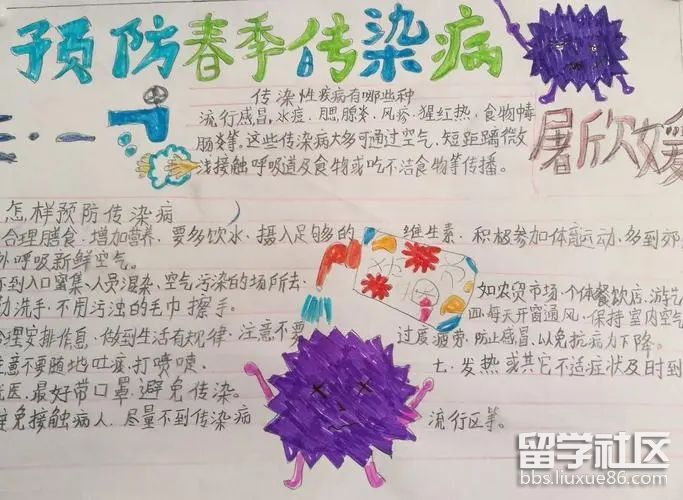 预防春季传染病
传染性疾病有哪些种
流行感冒,水痘.腮.腺炎.风疹.猩红热.食物
肠炎等。这些传染病大多可通过空气、短距离微
浅接触呼吸道及食物或吃不洁食物等传播。
屠欣媛
怎样预防传染病
合理膳食.增加营养,要多饮水,摄入足够的 维生素.积极参加体育运动、多到郊
外呼吸新鲜空气。
到人口蜜集、人员混染、空气污染的场所去. 如农贸市场.个体餐饮店、游艺
勤洗手,不用污浊的毛巾擦手。 四.每天开窗通风,保持室内空气
合理安排作息,做到生活有规律.注意不要 过度疲劳.防止感冒,以免抗病力下降。
注意不要随地吐痰,打喷嚏. 七.发热或其它不适症状及时到
就医,最好带口罩.避免传染。
避免接触病人、尽量不到传染病 流行区等。
留学社区
bbs.liuxue86.com